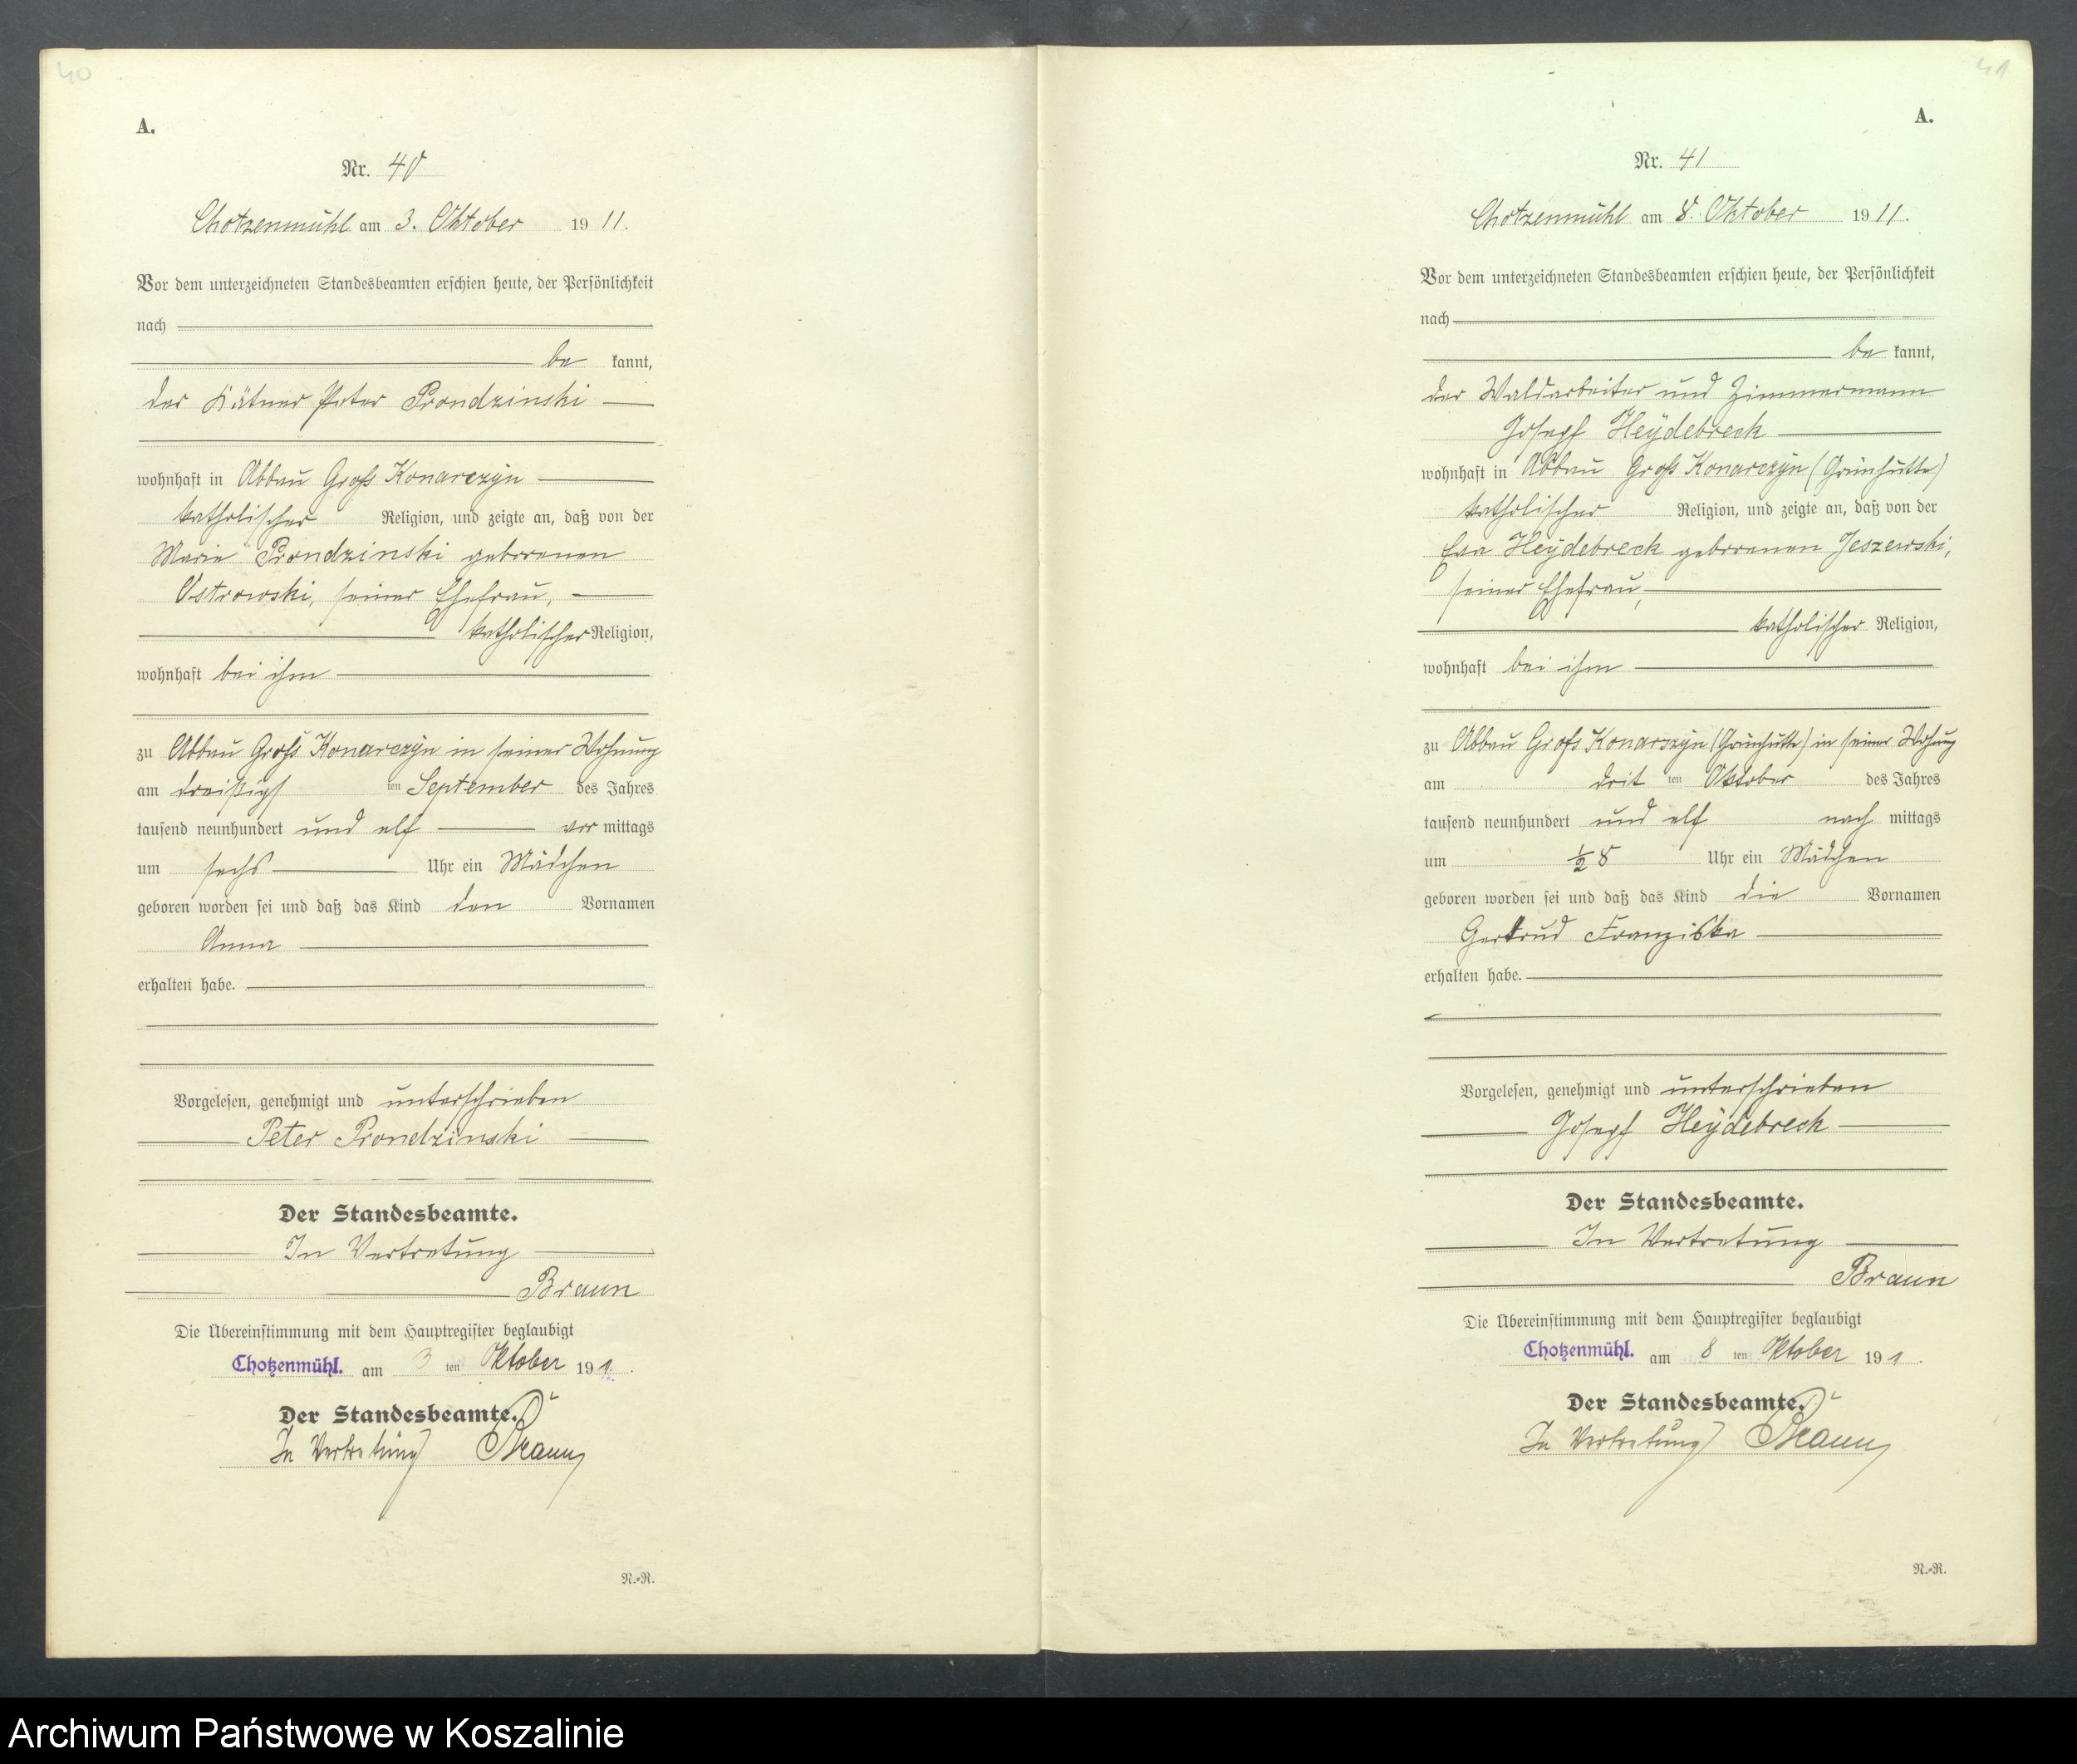 40
A.
Nr. 40
Chotzenmühl am 3. Oktober 1911.
Vor dem unterzeichneten Standesbeamten erschien heute, der Persönlichkeit
nach
be kannt,
der Kätner Peter Prondzinski
wohnhaft in Abbau Groß Konarczyn
katholischer Religion, und zeigte an, daß von der
Marie Prondzinski geborenen
Ostrowski, seiner Ehefrau,
katholischer Religion,
wohnhaft bei ihm
zu Abbau Groß Konarczyn in seiner Wohnung
am dreißigs ten September des Jahres
tausend neunhundert und elf vor mittags
um sechs Uhr ein Mädchen
geboren worden sei und daß das Kind den Vornamen
Anna
erhalten habe.
Vorgelesen, genehmigt und unterschrieben
Peter Prondzinski
Der Standesbeamte.
In Vertretung
Braun
Die Übereinstimmung mit dem Hauptregister beglaubigt
Chotzenmühl. am 3 ten Oktober 191
Der Standesbeamte.
In Vertretung Braun
N.-R.
41
A.
Nr. 41
Chotzenmühl am 8. Oktober 1911.
Vor dem unterzeichneten Standesbeamten erschien heute, der Persönlichkeit
nach
be kannt,
der Waldarbeiter und Zimmermann
Josepf Heÿdebreck
wohnhaft in Abbau Groß Konarczyn (Grünhütte)
katholischer Religion, und zeigte an, daß von der
Eva Heÿdebreck geborenen Jeszewski,
seiner Ehefrau,
katholischer Religion,
wohnhaft bei ihm
zu Abbau Groß Konarszyn (Grünhütte) in seiner Wohung
am drit ten Oktober des Jahres
tausend neunhundert und elf nach mittags
um ½ 8 Uhr ein Mädchen
geboren worden sei und daß das Kind die Vornamen
Gertrud Franziska
erhalten habe.
Vorgelesen, genehmigt und unterschrieben
Josepf Heÿdebreck
Der Standesbeamte.
In Vertretung
Braun
Die Übereinstimmung mit dem Hauptregister beglaubigt
Chotzenmühl. am 8 ten Oktober 191 .
Der Standesbeamte.
In Vertretung Braun
N.-R.
Archiwum Państwowe w Koszalinie